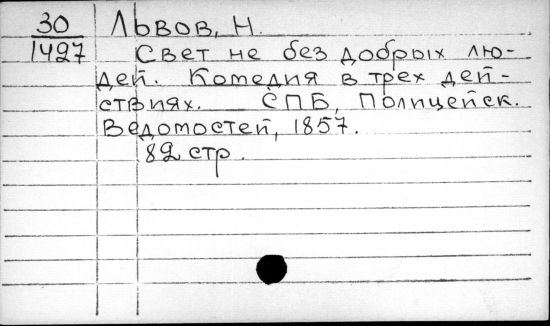 30 Львов, Н.
1427 Свет не без добрых лю-
дей. Комедия в трех дей-
ствиях. СПБ, Полицейск.
Ведомостей, 1857.
82 стр.